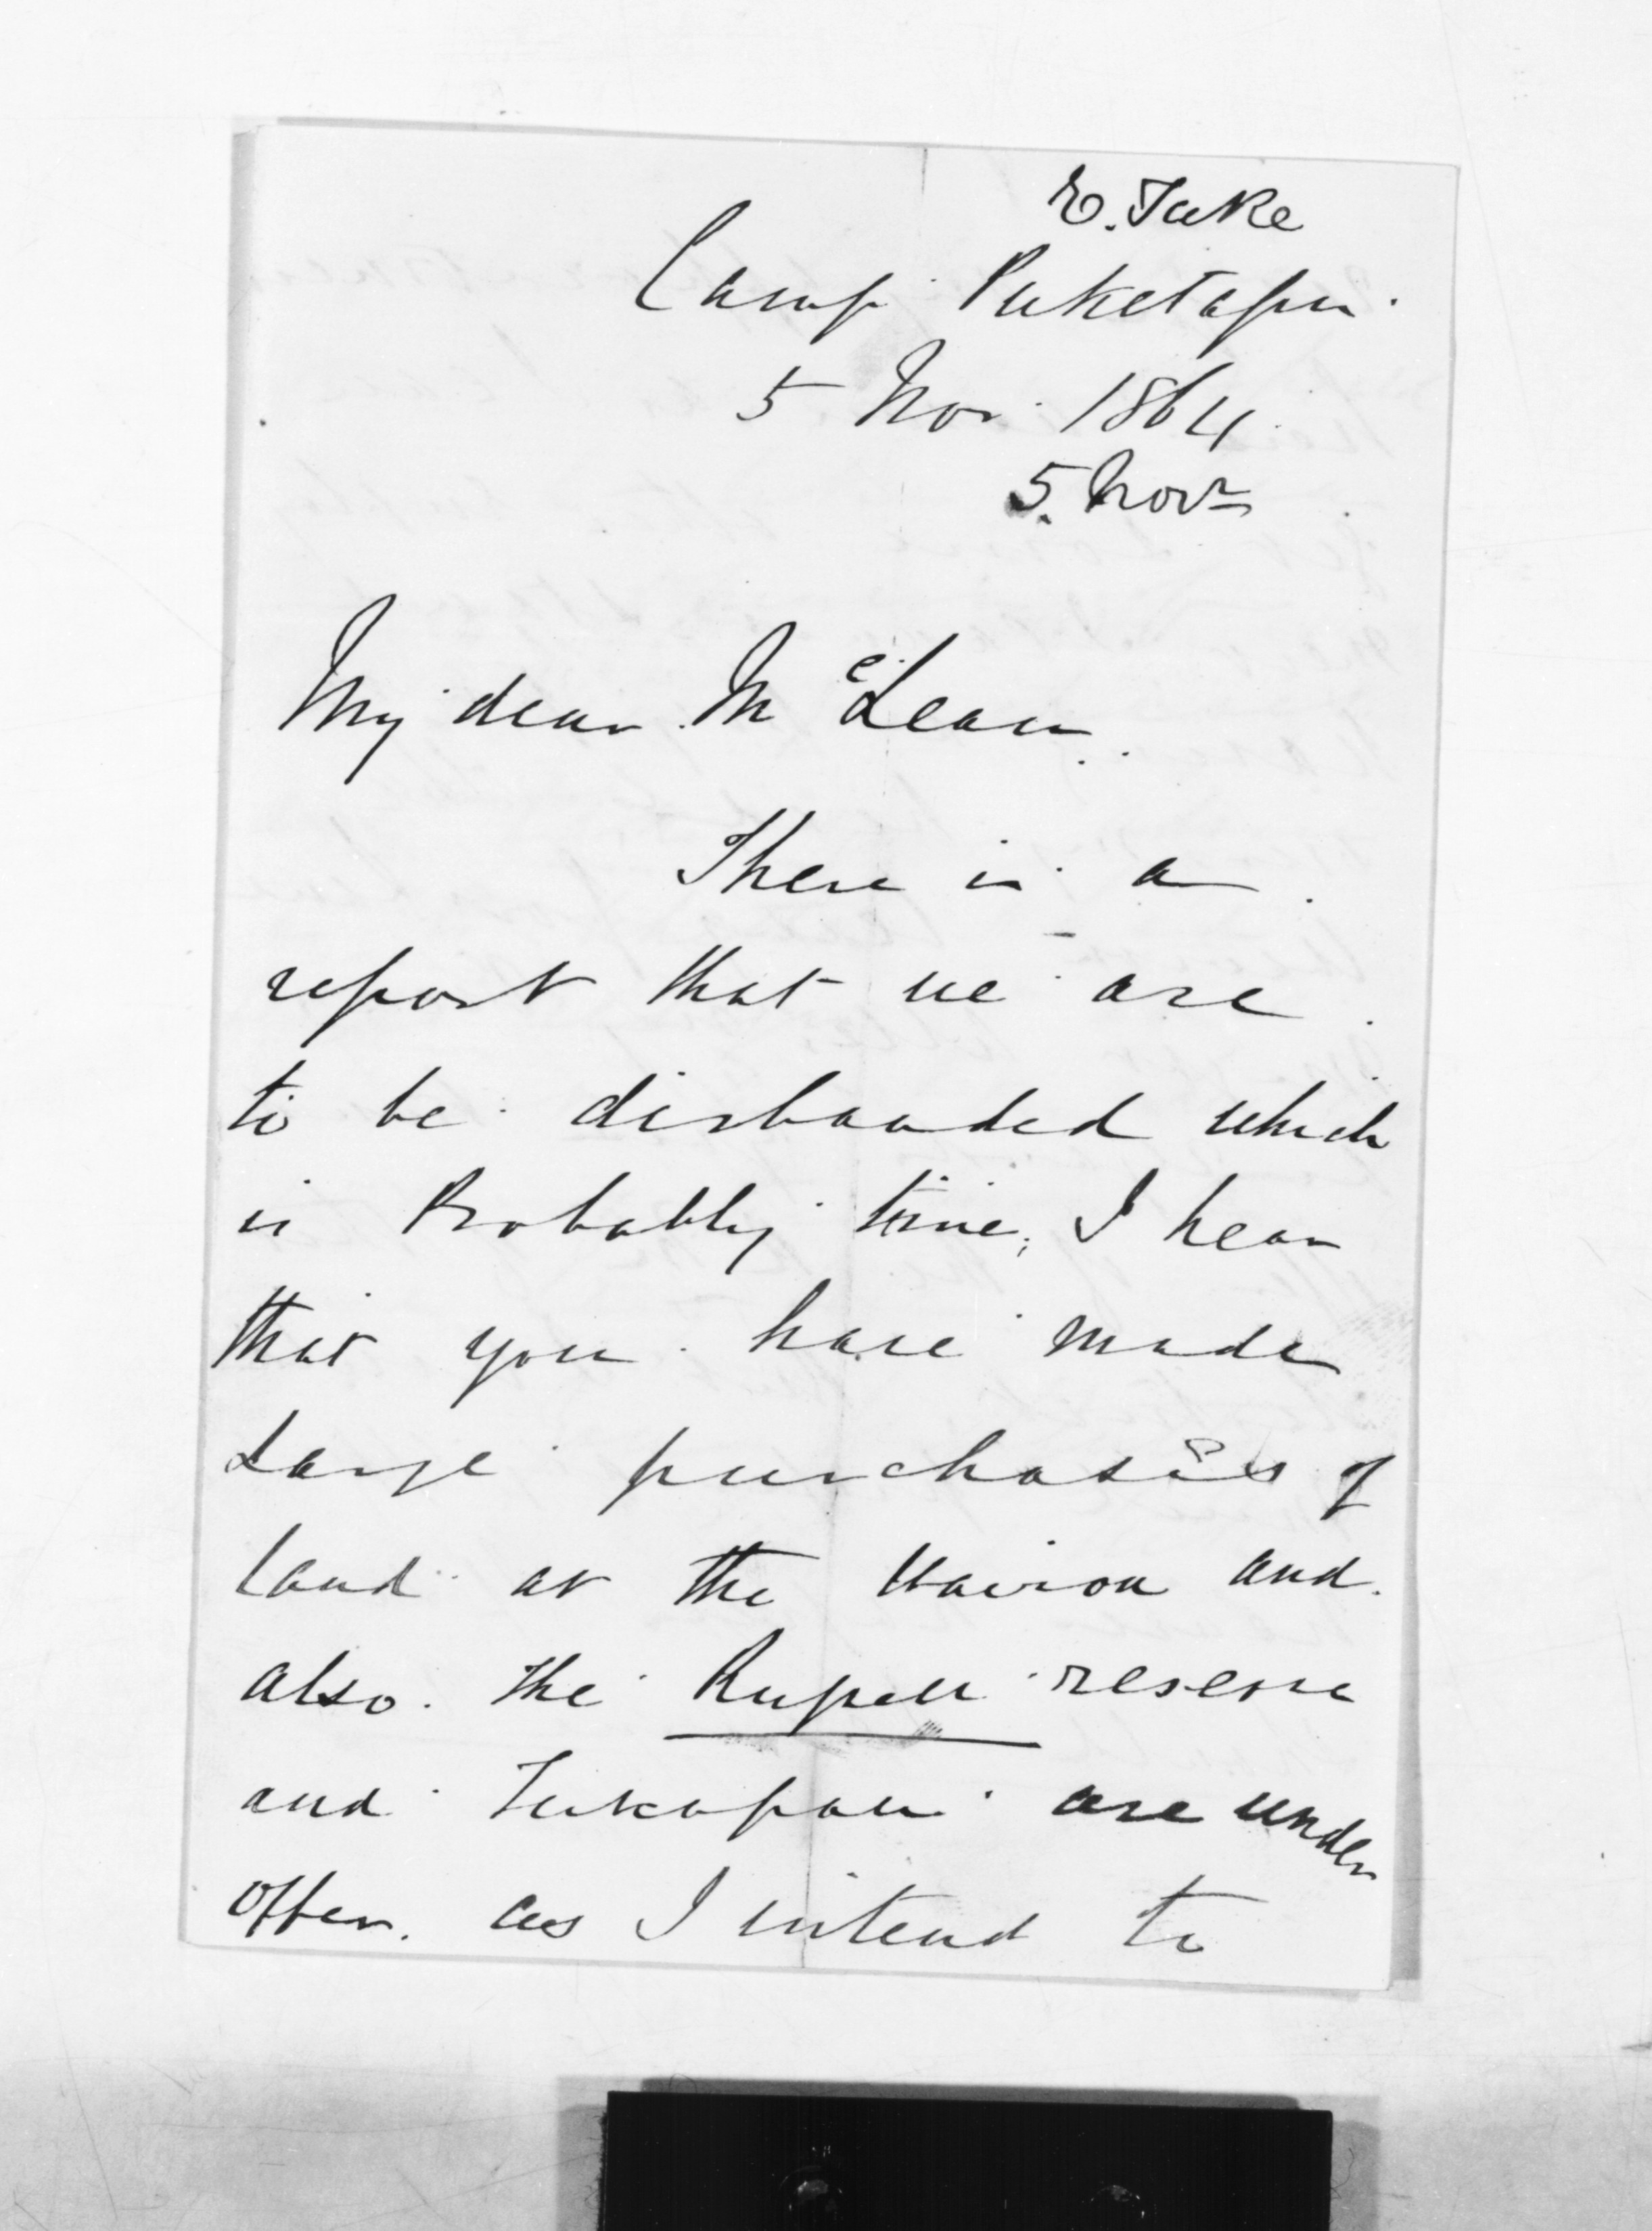 E. Tuke
Camp Puketapu
5 Nov 1864
5. Novr
My dear McLean
There is a
report that we are
to be disbanded which
is Probably true, I hear
that you have made
Large purchases of
land at the Wairoa and
also the reserve
and are under
offer. as I intend to